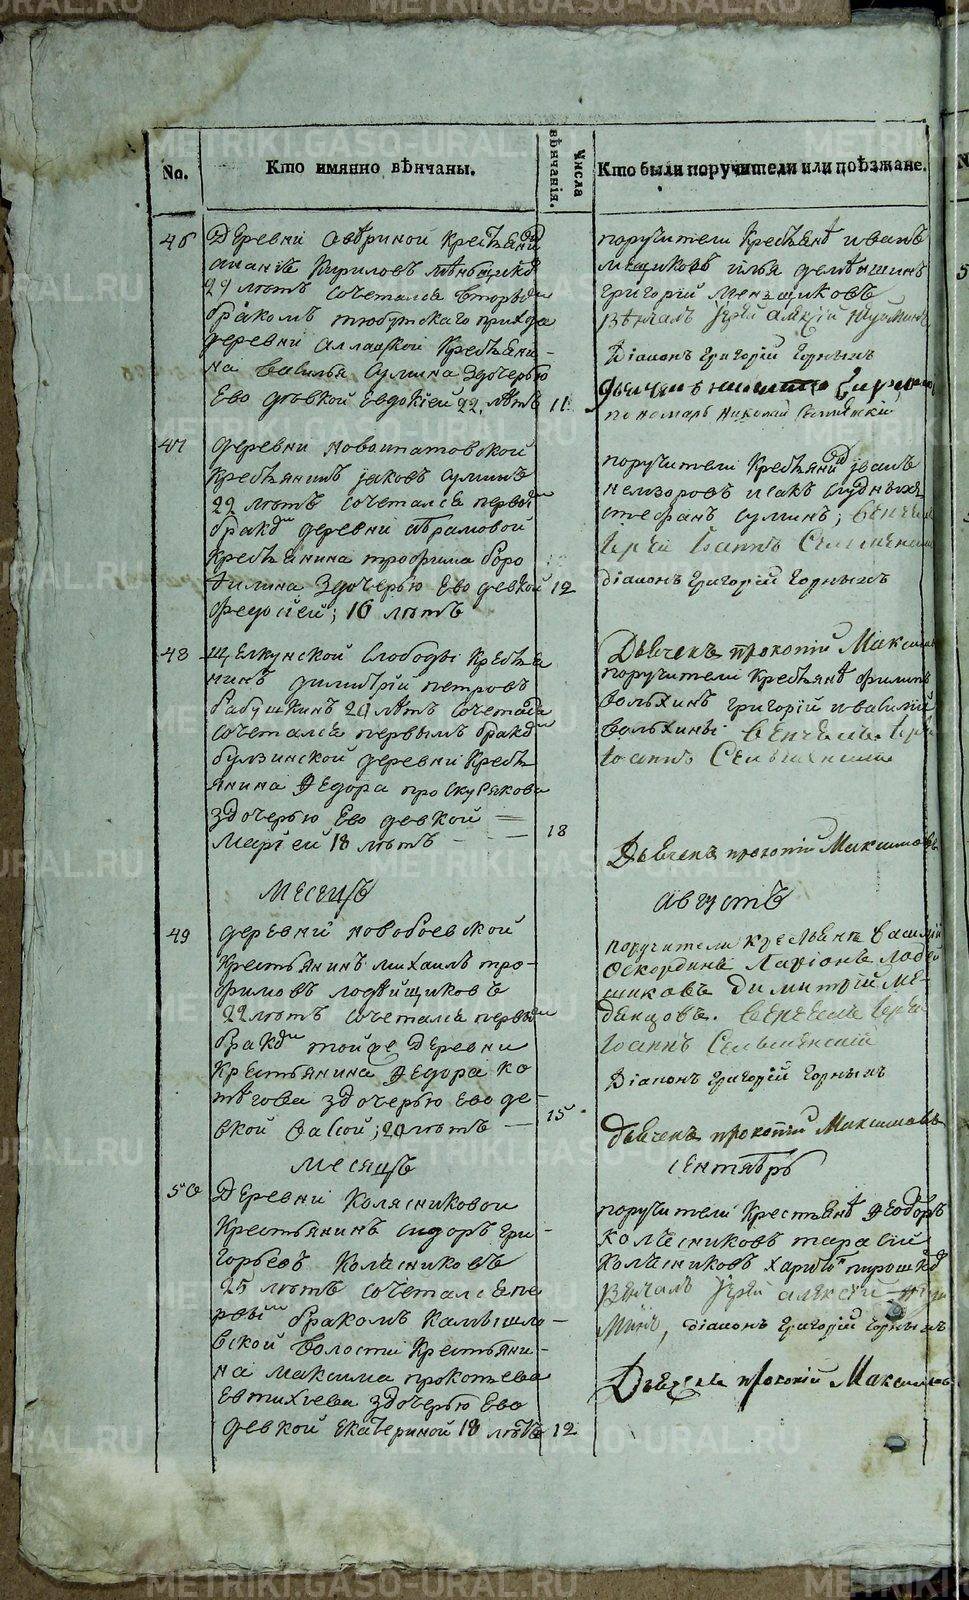 METRIKI.GASO-URAL.RU
No.
Кто имянно вѣнчаны.
Числа вѣнчанія.
Кто были поручители или поѣзжане.
46
Деревни Авѣриной Крестьянинъ
Ананій Кириловъ
29 лѣтъ сочетался вторымъ
бракомъ тюбукскаго прихода
деревни Аллакской Крестьяни-
на Василья Сулина здочерью
Ево девкой Евдокіей 22 лѣтъ 11
поручители Крестьянѣ иванъ
илья
григорій мензщиковъ
вѣнчалъ Іерей алексій
Діаконъ григорій горныхъ
пономарь Николай
47
деревни новоипатовской
Крестьянинъ яковъ сулинъ
22 лѣтъ сочетался первымъ
бракомъ деревни абрамовой
Крестьянина трофима боро
дулина здочерью Ево девкой 12
федосіей; 16 лѣтъ
поручители Крестьяни
исакъ
стефанъ сулинъ; венчалъ
Іерей Іоаннъ
діаконъ григорій горныхъ
Дьячекъ прокопій Максимовъ
48
щелкунской слободы Крестья
нинъ димитрій петровъ
бабушкинъ 20 лѣтъ сочетался
сочетался первымъ бракомъ
булзинской деревни Кресть
янина Федора проскурякова
здочерью Ево девкой
маріей 18 лѣтъ 18
поручители Крестьянѣ филипъ
вольхинъ григорій и василій
вольхины венчалъ Іерей
Іоаннъ
Дьячекъ прокопій Максимовъ
Месяцъ Августъ
49
деревни новобоевской
Крестьянинъ михаилъ тро-
фимовъ лодейщиковъ
22 лѣтъ сочетался первымъ
бракомъ тойже деревни
Крестьянина Федора ко
тѣгова здочерью Ево де-
вкой васой; 20 лѣтъ 15
поручители крестьяне василій
оскординъ Ларіонъ лодей
щиковъ димитрій ме-
дянцовъ. венчалъ Іерей
Іоаннъ
Діаконъ григорій горныхъ
дьячекъ прокопій Максимовъ
месяцъ сентябрь
50
Деревни Колясниковой
Крестьянинъ сидоръ гри-
горьевъ Колясниковъ
25 лѣтъ сочетался пе
рвымъ бракомъ Камышло-
вской волости Крестьяни-
на максима прокопьева
Евтихиева здочерью Ево
девкой Екатериной 18 лѣтъ 12
поручители Крестьянѣ Феодоръ
Колясниковъ тарасій
Колясниковъ харитонъ
вѣнчалъ Іерей алексій
діаконъ григорій горныхъ
Дьячекъ прокопій Максимовъ